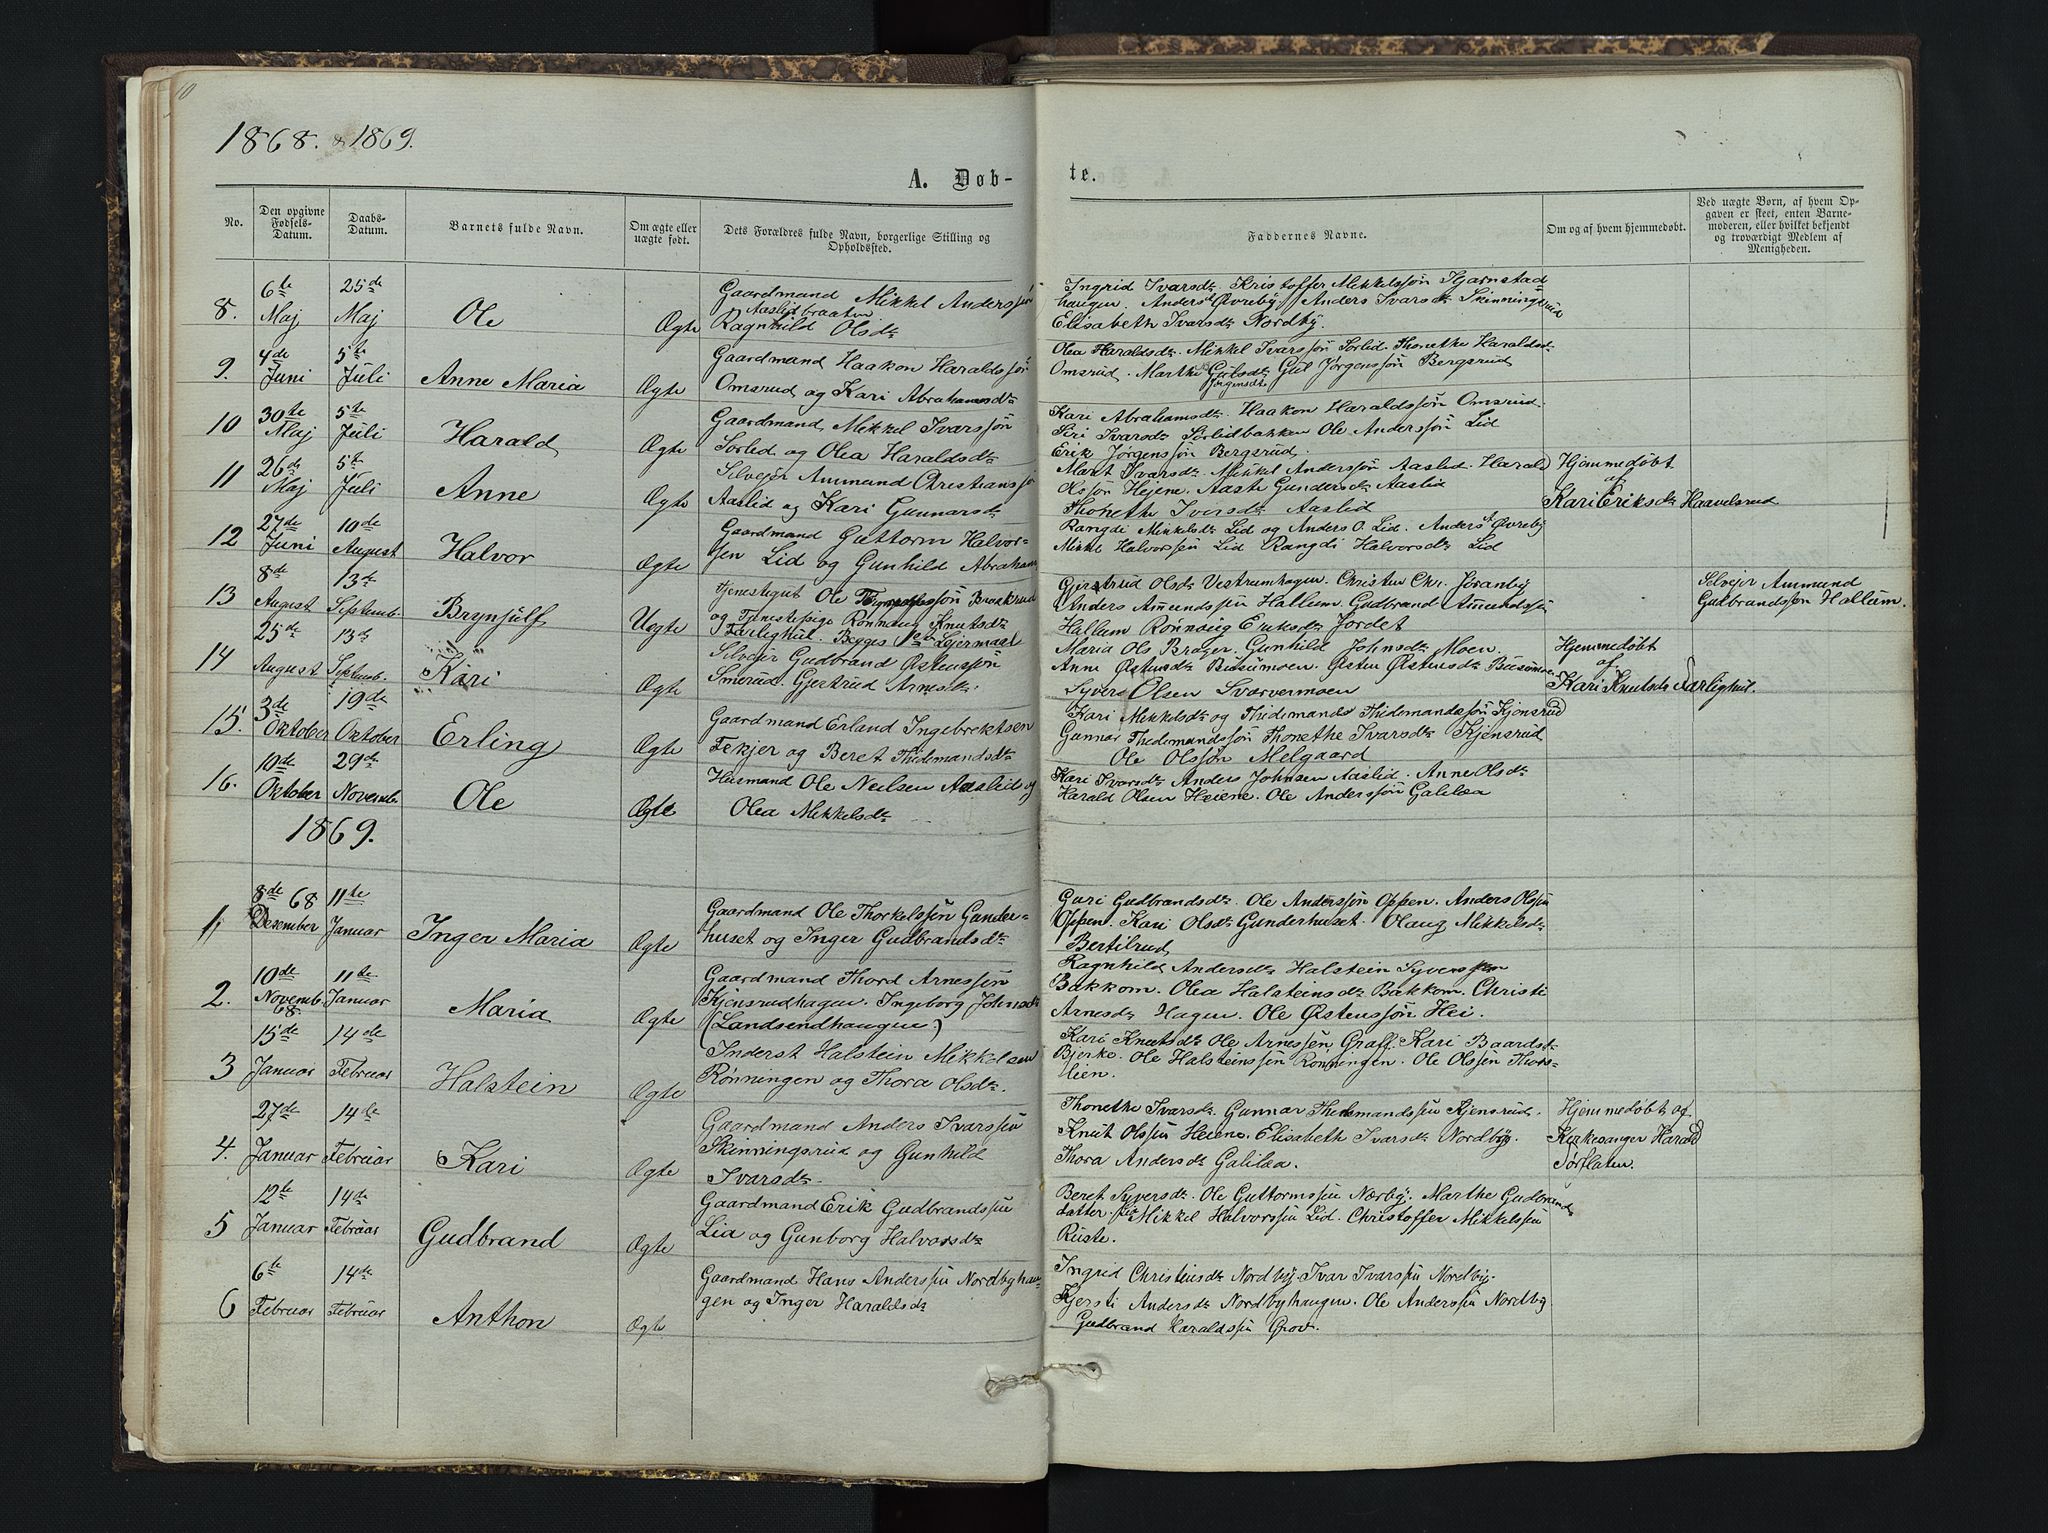 10
1868. & 1869.
A. Døb-
te.
No.
Den opgivne Fødsels-Datum.
Daabs-Datum.
Barnets fulde Navn.
Om ægte eller uægte født.
Dets Forældres fulde Navn, borgerlige Stilling og Opholdssted.
Faddernes Navne.
Om og af hvem hjemmedøbt.
Ved uægte Børn, af hvem Opgaven er skeet, enten Barnemoderen, eller hvilket bekjendt og troværdigt Medlem af Menigheden.
8. 6te Maj 25de Maj Ole Ægte
Gaardmand Mikkel Anderssøn
Aaslidbraaten
Ragnhild Olsdr
Ingrid Ivarsdr. Kristoffer Mikkelssøn Hjarnstad-
haugen. Anders Øvreby Anders Ivarsdr Skinningsrud
Elisabeth Ivarsdr Nordby.
9. 4de Juni 5te Juli Anne Maria Ægte
Gaardmand Haakon Haraldssøn
Omsrud og Kari Abrahamsdr
Olea Haraldsdr. Mikkel Ivarssøn Sorlid. Thonethe Haraldsdr
Omsrud. Marthe Gulsdr Gul Jørgenssøn Bergsrud
Jørgensdr
10 30te Maj 5te Juli Harald Ægte
Gaardmand Mikkel Ivarssøn
Sorlid og Olea Haraldsdr
Kari Abrahamsdr. Haakon Haraldssøn Omsrud.
Siri Ivarsdr Sorlidbakken Ole Anderssøn Lid
Erik Jørgenssøn Bergsrud.
11 26de Maj 5te Juli Anne Ægte
Selvejer Ammund Christianssø
Aaslid og Kari Gunnarsdr
Marit Ivarsdr. Mikkel Anderssøn Aaslid. Harald
Olssøn Hejene. Aaste Gundersdr Aaslid
Thonethe Iversdr Aaslid
Hjemmedøbt
af
Kari Eriksdr Haavelsrud
12 27de Juni 10de August Halvor Ægte
Gaardmand Guttorm Halvor-
sen Lid og Gunhild Abraham
Rangdi Mikkelsdr Lid og Anders O. Lid. Anders Øvreby
Mikkel Halvorssøn Lid Rangdi Halvorsdr Lid
13 8de August 13de Septemb. Brynjulf Uegte
Tjenestegut Ole
og Tjenestepige Rønnaug Knutsdr
Farlighul. Begges 1ste Lejermaal
Gjertrud Olsdr Vestrumhagen. Christen Chr. Joranby
Anders Amundssøn Hallum. Gudbrand Amundssøn
Hallum Rønnaug Eriksdr Jordet
Selvejer Ammund
Gudbrandssøn Hallum.
14 25de August 13de Septemb. Kari Ægte
Selvejer Gudbrand Østenssøn
Smerud. Gjertrud Arnesdr.
Maria Ols Brager. Gunhild Johnsdr Moen.
Anne Østensdr Busumoen. Østen Østensdr Busumoe.
Syver Olsen Svarvermoen
Hjemmedøbt
af
Kari Knutsdr Farlighul.
15. 3de Oktober 19de Oktober Erling Ægte
Gaardmand Erland Ingebrektsen
Fekjer og Beret Thidemandsdr
Kari Mikkelsdr og Thidemands Thidemandssøn Kjensrud
Gunnar Thidemandssøn Thonethe Ivarsdr Kjensrud
Ole Olssøn Melgaard
16. 10de Oktober 29de Novemb. Ole Ægte
Husmand Ole Neilsen Aaslid og
Olea Mikkelsdr
Kari Ivarsdr Anders Johnsen Aaslid. Anne Olsdr
Harald Olsen Heiene. Ole Anderssøn Galilæa
1869.
1, 8de Desember 68 11te Januar Inger Maria Ægte
Gaardmand Ole Thorkelssøn Gunder-
huset og Inger Gudbrandsdr
Guri Gudbrandsdr. Ole Anderssøn Oppen. Anders Olssøn
Oppen. Kari Olsdr Gunderhuset. Olaug Mikkelsdr
Bertilrud
2. 10de Novemb. 68 11te Januar Maria Ægte
Gaardmand Thord Arnessøn
Kjensrudhagen. Ingeborg Johnsdr
(Landsendhaugen)
Ragnhild Andersdr Halstein Syverssøn
Bakkom. Olea Halsteinsdr Bakkom. Christi
Arnesdr Hagen. Ole Østenssøn Hei.
3 15de Januar 14de Februar Halstein Ægte
Inderst Halstein Mikkelsen
Rønningen og Thora Olsdr.
Kari Knutsdr Ole Arnessøn Graff. Kari Baardsdr
Bjerke. Ole Halsteinssøn Rønningen. Ole Olssøn Thors-
Hien.
4. 27de Januar 14de Februar Kari Ægte
Gaardmand Anders Ivarssøn
Skinningsrud og Gunhild
Ivarsdr.
Thonethe Ivarsdr. Gunnar Thidemandssøn Kjensrud.
Knut Olssøn Heiene. Elisabeth Ivarsdr Nordby.
Thora Andersdr Galilæa.
Hjemmedøbt af
Kirkesanger Harald
Tørflaten.
5 12te Januar 14de Februar Gudbrand Ægte
Gaardmand Erik Gudbrandssøn
Lia og Gunborg Halvorsdr
Beret Syversdr. Ole Guttormssøn Nærby. Marthe Gudbrands
datter. Mikkel Halvorssøn Lid. Christoffer Mikkelssøn
Ruste.
6 6te Februar 14de Februar Anthon Ægte
Gaardmand Hans Anderssøn Nordbyhau-
gen og Inger Haraldsdr
Ingrid Christensdr Nordby. Ivar Ivarssøn Nordby.
Kjersti Andersdr Nordbyhaugen. Ole Anderssøn Nordby
Gudbrand Haraldssøn Grov.